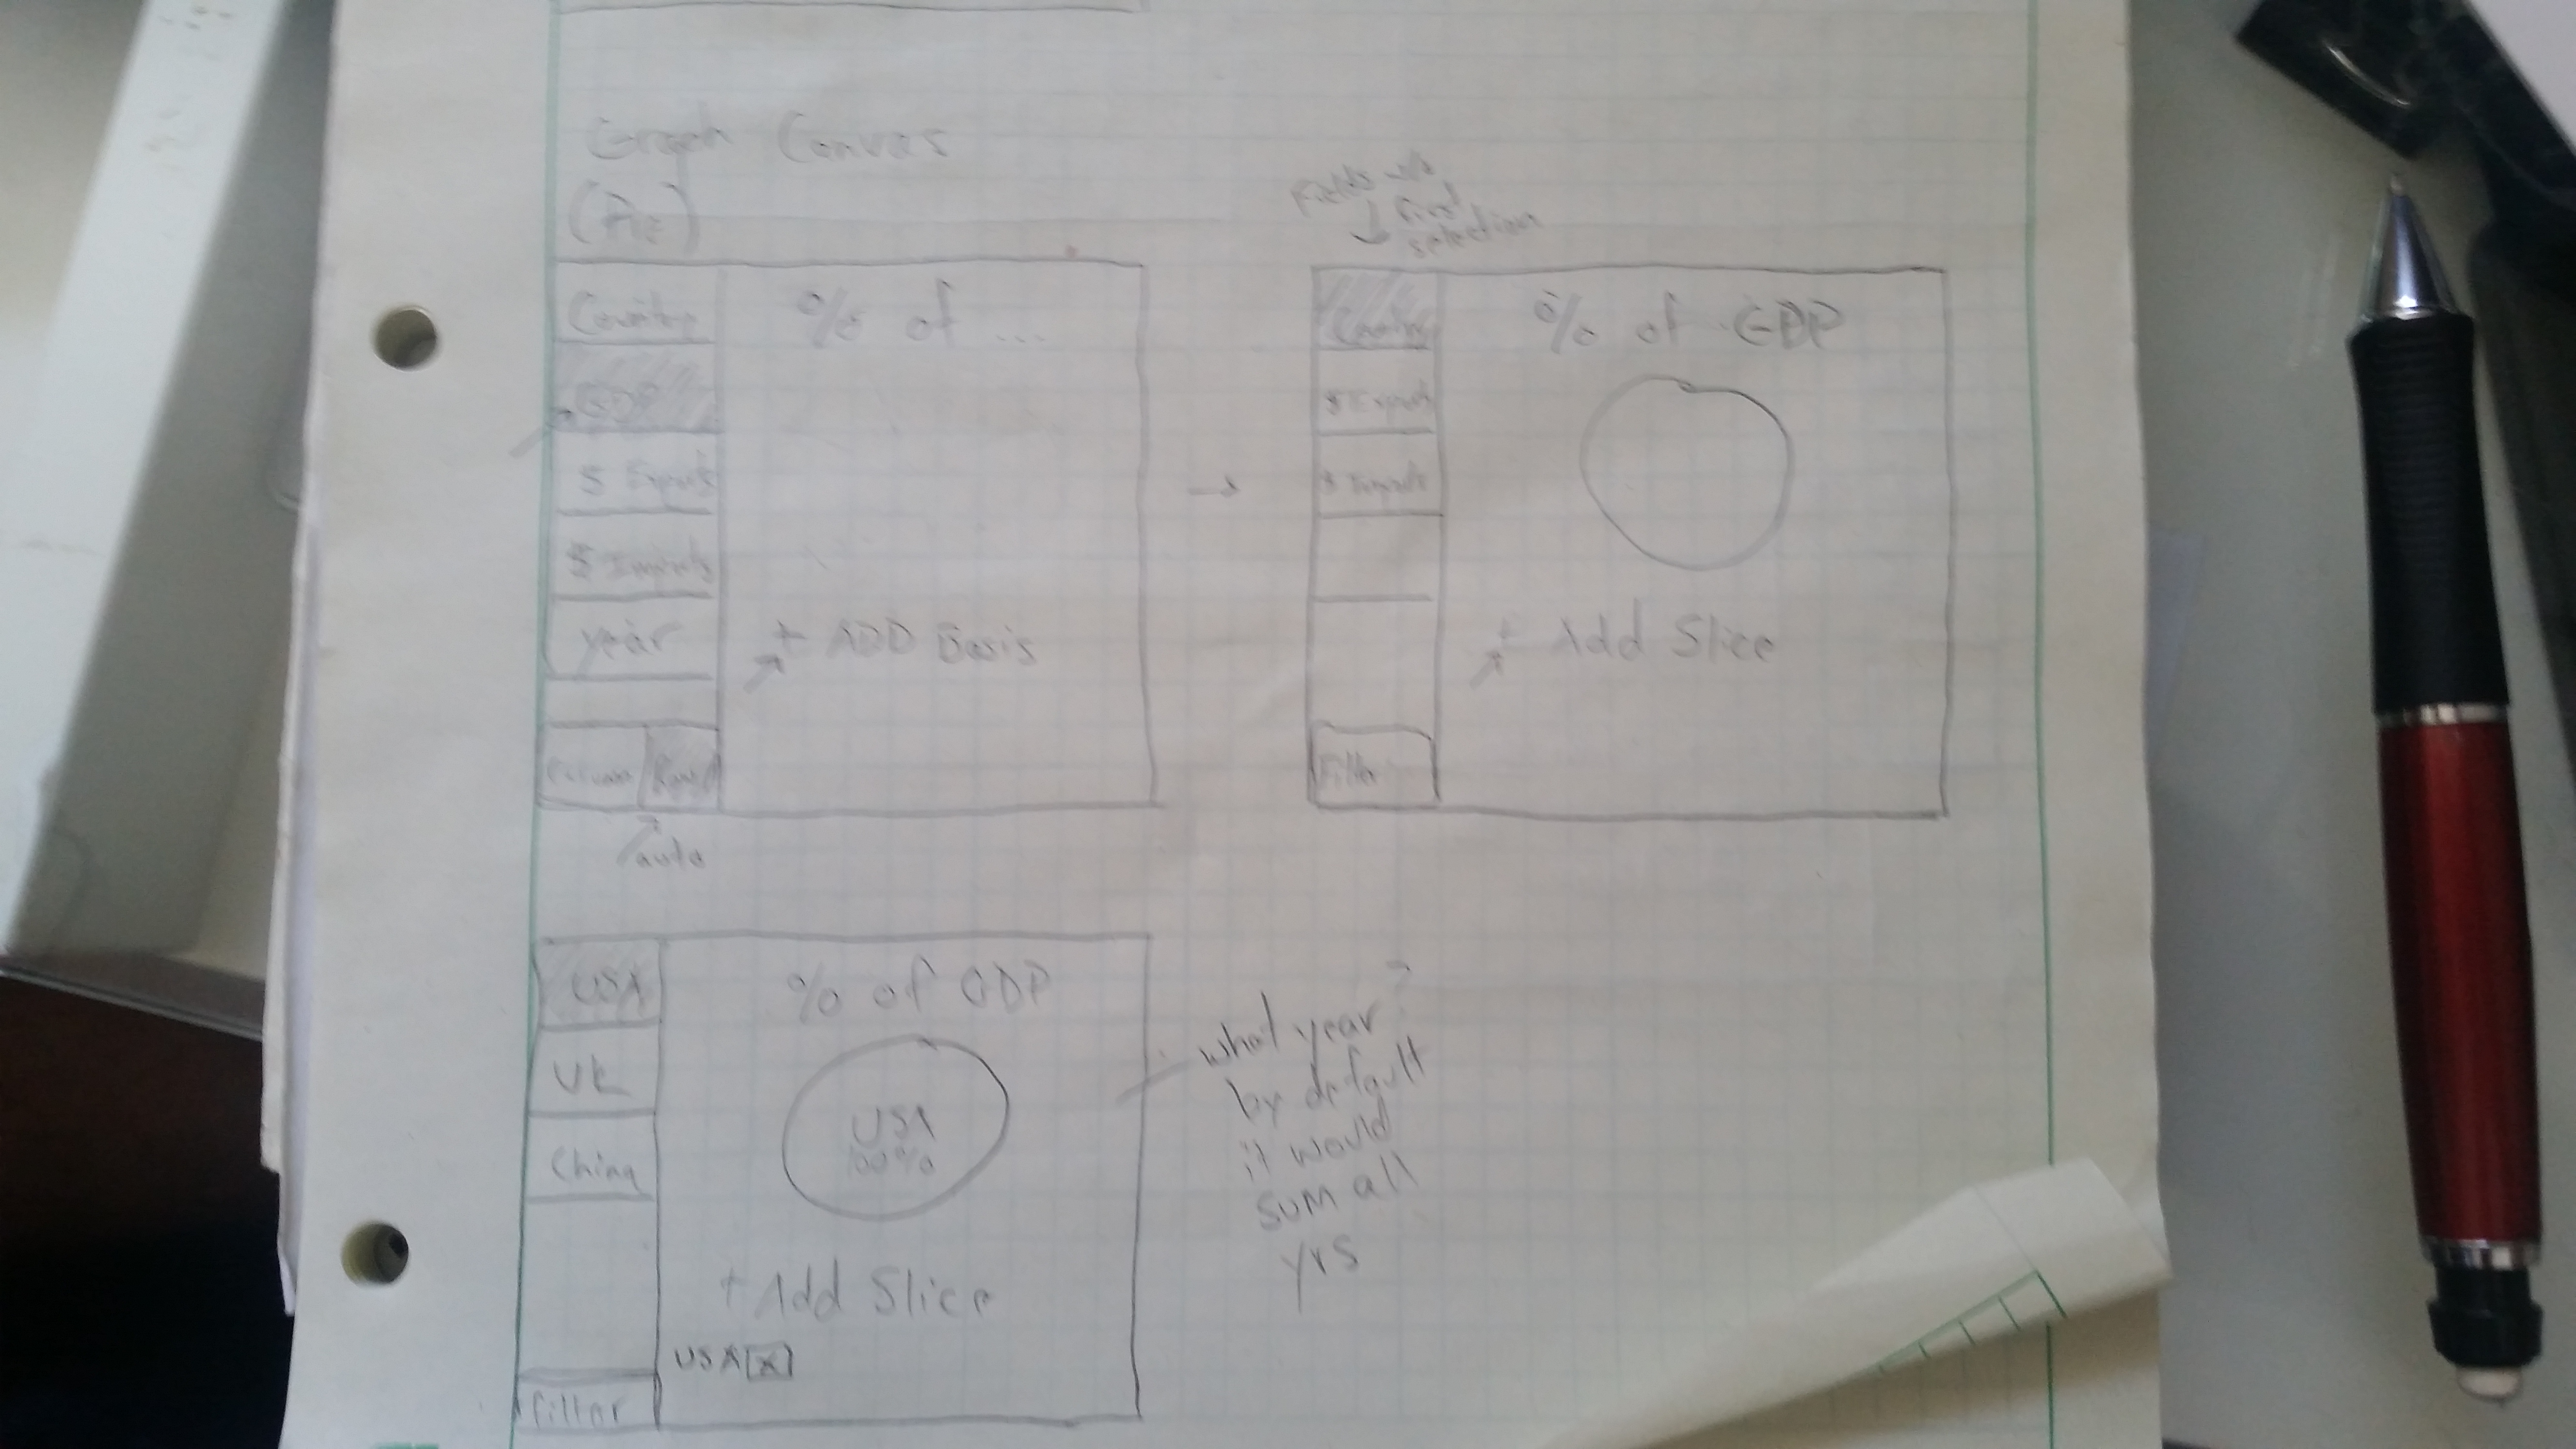 Graph Canvas
(Pie)
Country
GDP
$ Exports
$ Imports
Year
Column / Row
auto
% of ...
+ ADD Basis
→
first
selection
Country
$ Exports
$ Imports
Filter
% of GDP
+ Add Slice
USA
UK
China
Filtar
% of GDP
USA
100%
+ Add Slice
USA x
what year?
by default
it would
sum all
yrs